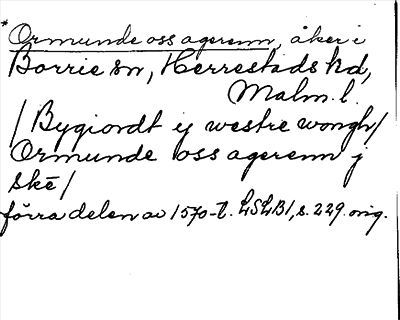 *Ormunde oss agerenn, åker i
Borrie sn, Herrestads hd,
Malm. l.
/Bygiordt ij westre wongh/
Ormunde oss agerenn j
skē/
förra delen av 1570-t. LSLB1, s. 229. orig.